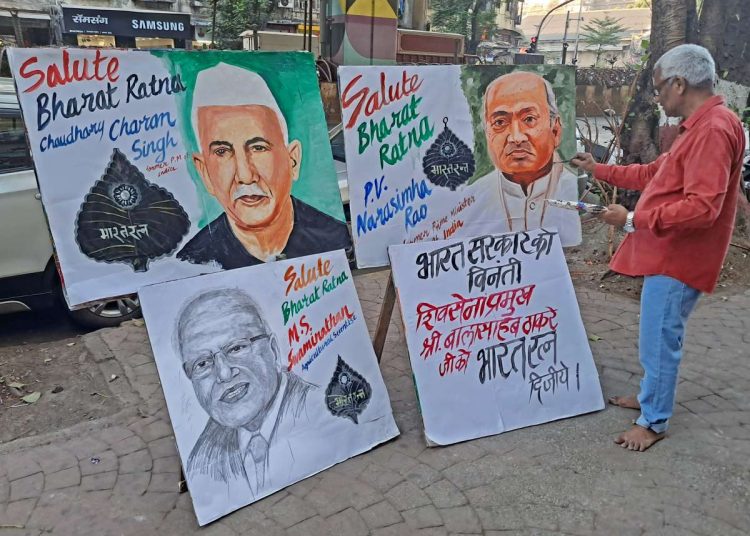 सॅमसंग
SAMSUNG
SAMSUNG
Salute
Bharat Ratna
Chaudhary Charan
Singh
Former P.M of
India
भारतरत्न
Salute
Bharat
Ratna
P.V.
Narasimha
Rao
Former Prime Minister
of India
भारतरत्न
Salute
Bharat Ratna
M.S.
Swaminathan
Agricultural Scientist
भारतरत्न
भारत सरकार को
विनती
शिवसेना प्रमुख
श्री. बालासाहेब ठाकरे
जी को भारतरत्न
दिजीये।